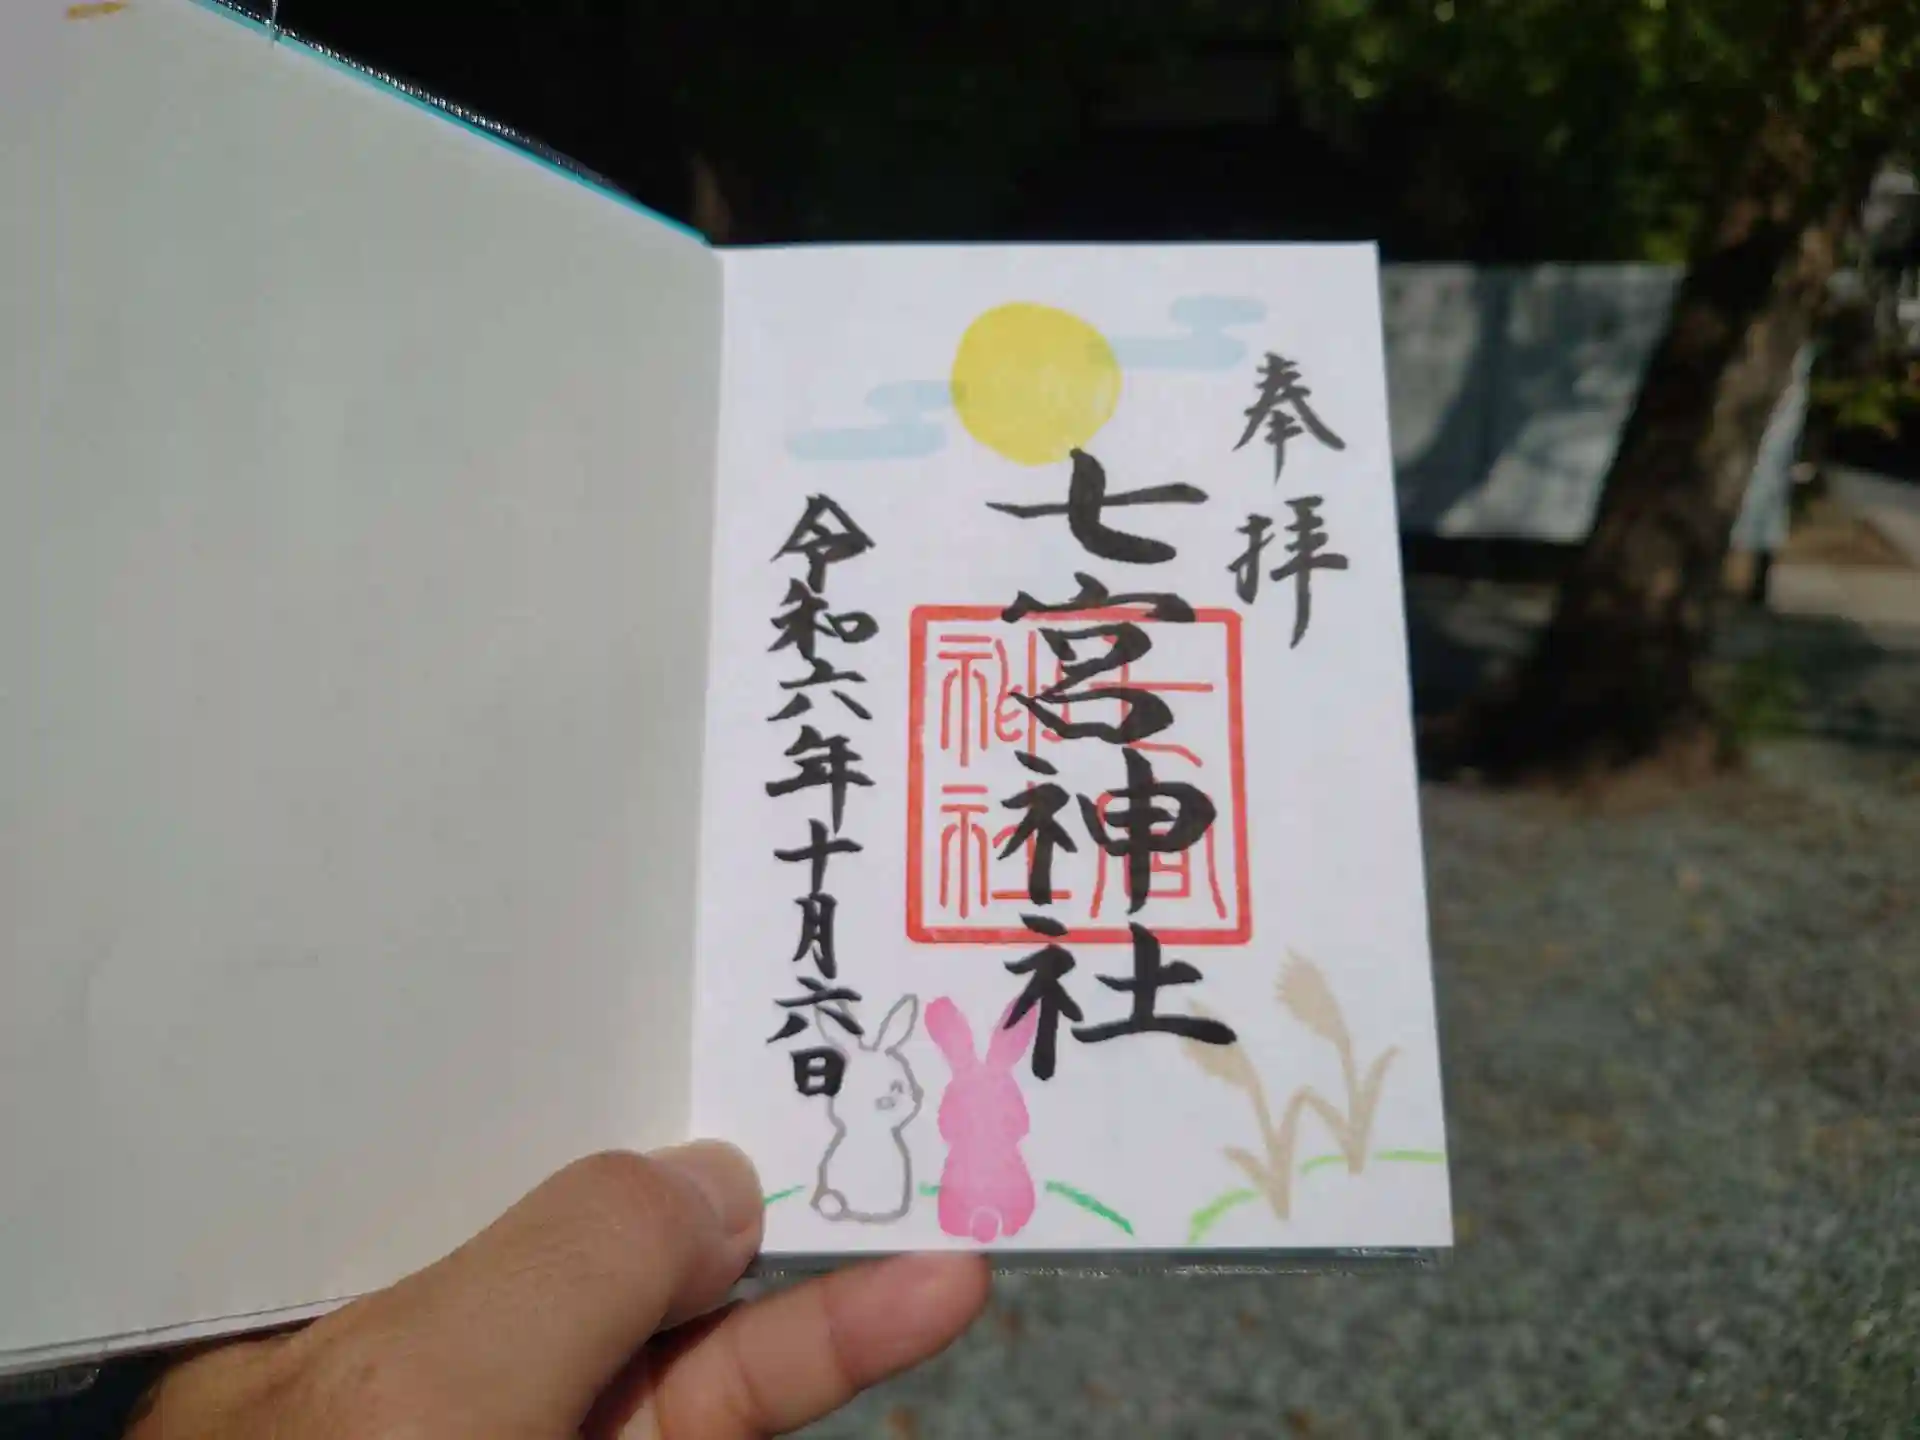 奉拝
七宮神社
七宮
神社
令和六年十月六日